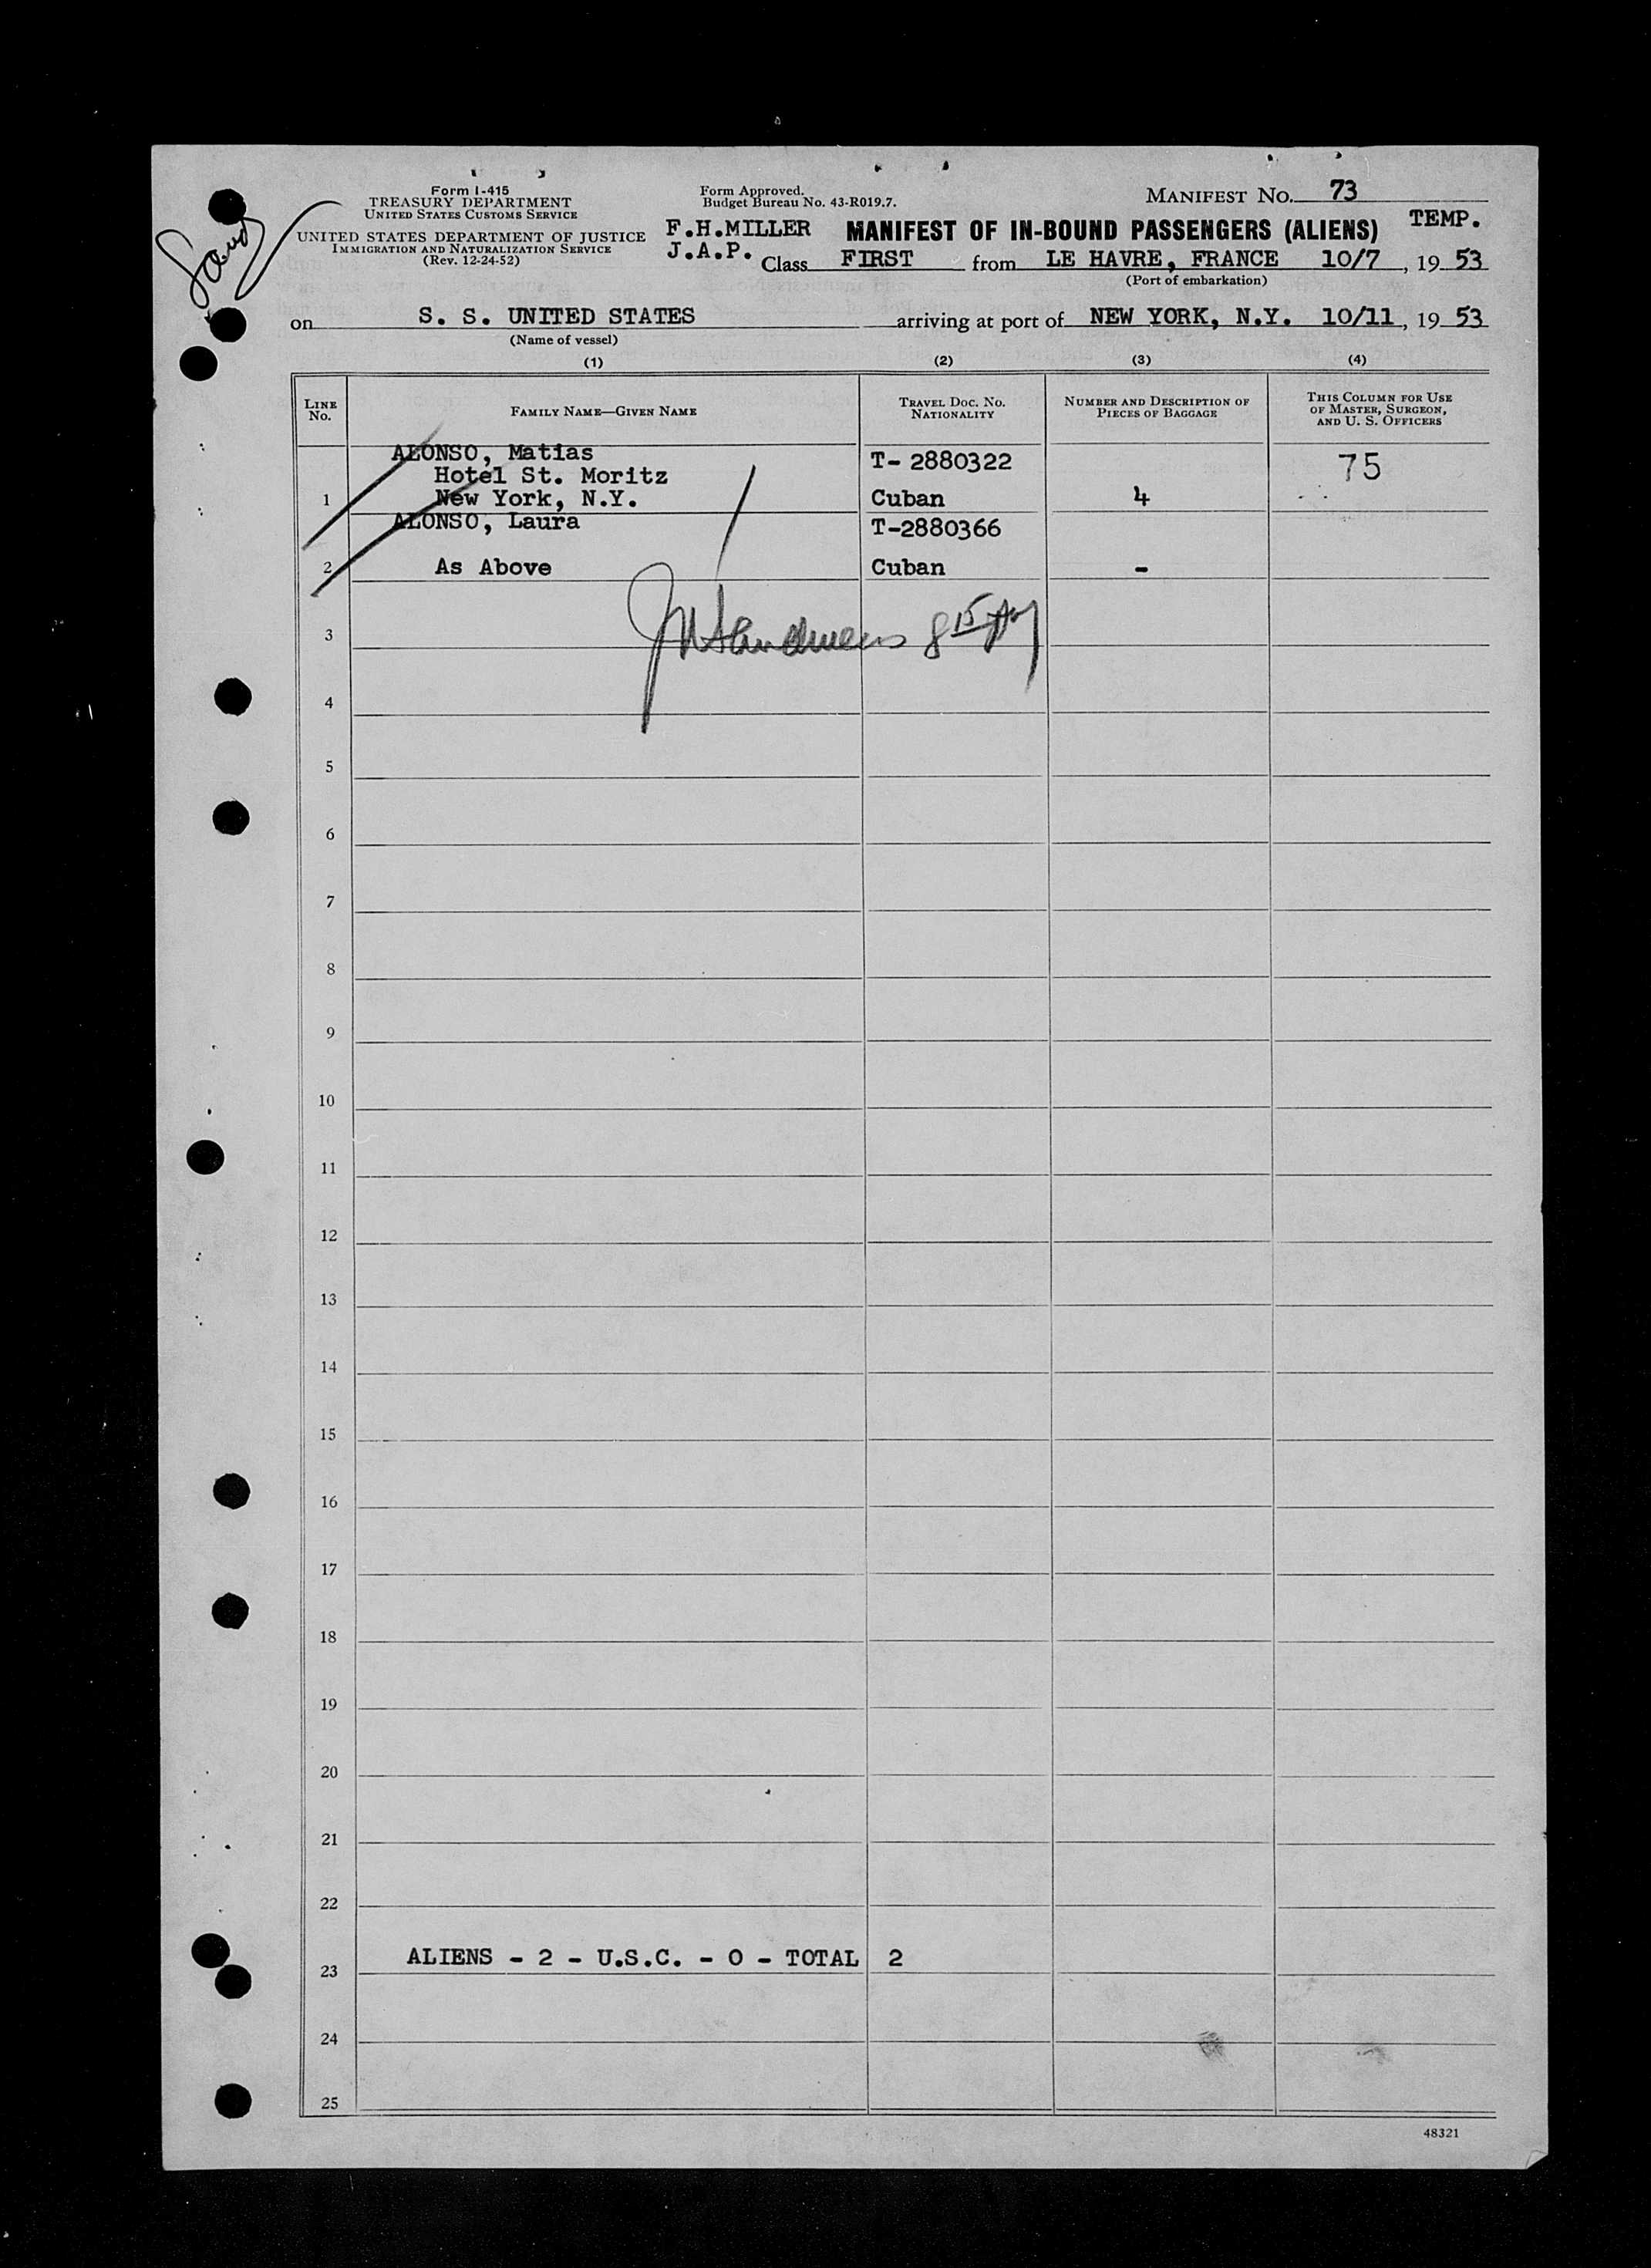 Form I-415
TREASURY DEPARTMENT
UNITED STATES CUSTOMS SERVICE
UNITED STATES DEPARTMENT OF JUSTICE
IMMIGRATION AND NATURALIZATION SERVICE
(Rev. 12-24-52)
Form Approved.
Budget Bureau No. 43-R019.7.
MANIFEST No. 73
F.H.MILLER MANIFEST OF IN-BOUND PASSENGERS (ALIENS) TEMP.
J.A.P. Class FIRST from LE HAVRE, FRANCE 10/7, 19 53
(Port of embarkation)
on S. S. UNITED STATES arriving at port of NEW YORK, N.Y. 10/11, 19 53
(Name of vessel)
(1) (2) (3) (4)
LINE No. FAMILY NAME—GIVEN NAME TRAVEL DOC. NO. NATIONALITY NUMBER AND DESCRIPTION OF PIECES OF BAGGAGE THIS COLUMN FOR USE OF MASTER, SURGEON, AND U. S. OFFICERS
ALONSO, Matias T- 2880322 75
Hotel St. Moritz
1 New York, N.Y. Cuban 4
ALONSO, Laura T-2880366
2 As Above Cuban -
3
4
5
6
7
8
9
10
11
12
13
14
15
16
17
18
19
20
21
22
ALIENS - 2 - U.S.C. - 0 - TOTAL 2
23
24
25
48321